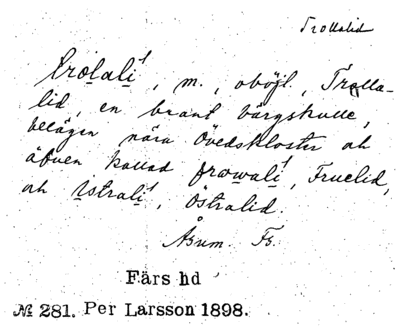 Trollalid
trolalí, m., oböjl., Trolla-
lid, en brant bärgskulle,
belägen nära Övedskloster ock
äfven kallad frowalí, Fruelid,
ock Ustralí, Östralid.
Åsum. Fs.
Färs hd
№ 281. Per Larsson 1898.